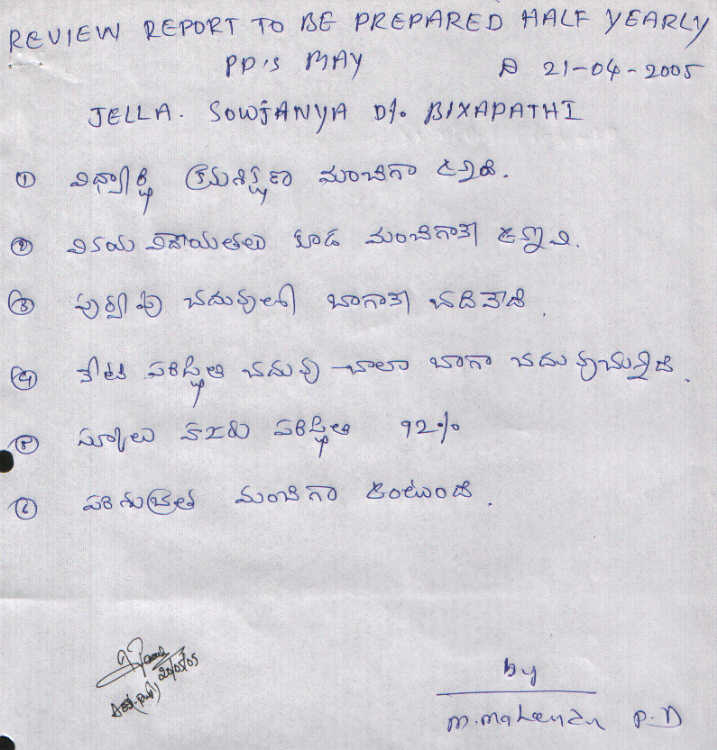 REVIEW REPORT TO BE PREPARED HALF YEARLY
PD's MAY D 21-04-2005
JELLA. SOWJANYA D/o BIXAPATHI
① విద్యార్థి క్రమశిక్షణ మంచిగా ఉన్నది.
② వినయ విదాయతలు కూడ మంచిగానే ఉన్నవి.
③ పూర్వపు చదువులో బాగానే చదివేది.
④ నేటి పరిస్థితి చదువు చాలా బాగా చదువుచున్నది.
⑤ స్కూలు హాజరు పరిస్థితి 92%
⑥ పరిశుభ్రత మంచిగా ఉంటుంది.
20/05/05
by
M. Mahender P.D